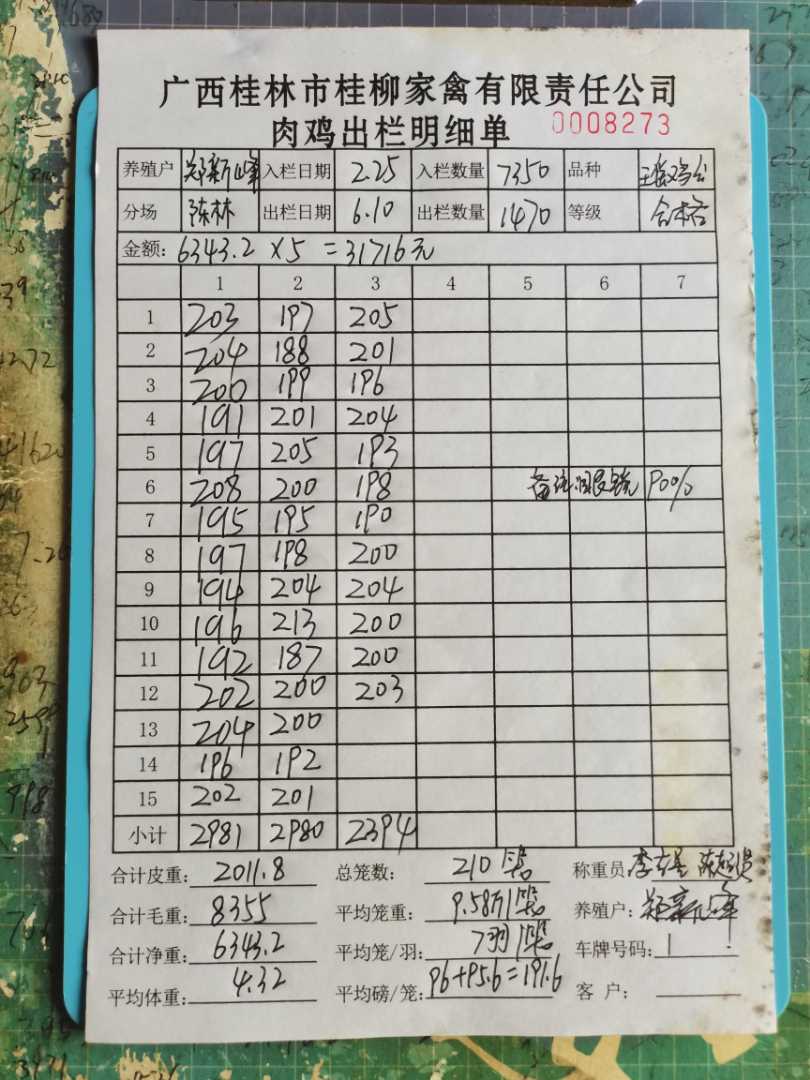 广西桂林市桂柳家禽有限责任公司
肉鸡出栏明细单 0008273
养殖户 郑新峰 入栏日期 2.25 入栏数量 7350 品种
分场 陈林 出栏日期 6.10 出栏数量 1470 等级 合格
金额: 6343.2 ×5 =31716元
1 2 3 4 5 6 7
1 203 197 205
2 204 188 201
3 200 199 196
4 191 201 204
5 197 205 193
6 208 200 198 90%
7 195 195 190
8 197 198 200
9 194 204 204
10 196 213 200
11 192 187 200
12 202 200 203
13 204 200
14 196 192
15 202 201
小计 2981 2980 2394
合计皮重: 2011.8 总笼数: 210 称重员:
合计毛重: 8355 平均笼重: 9.58 养殖户: 郑新峰
合计净重: 6343.2 平均笼/羽: 7羽 车牌号码:
平均体重: 4.32 平均磅/笼: 96+95.6=191.6 客 户: